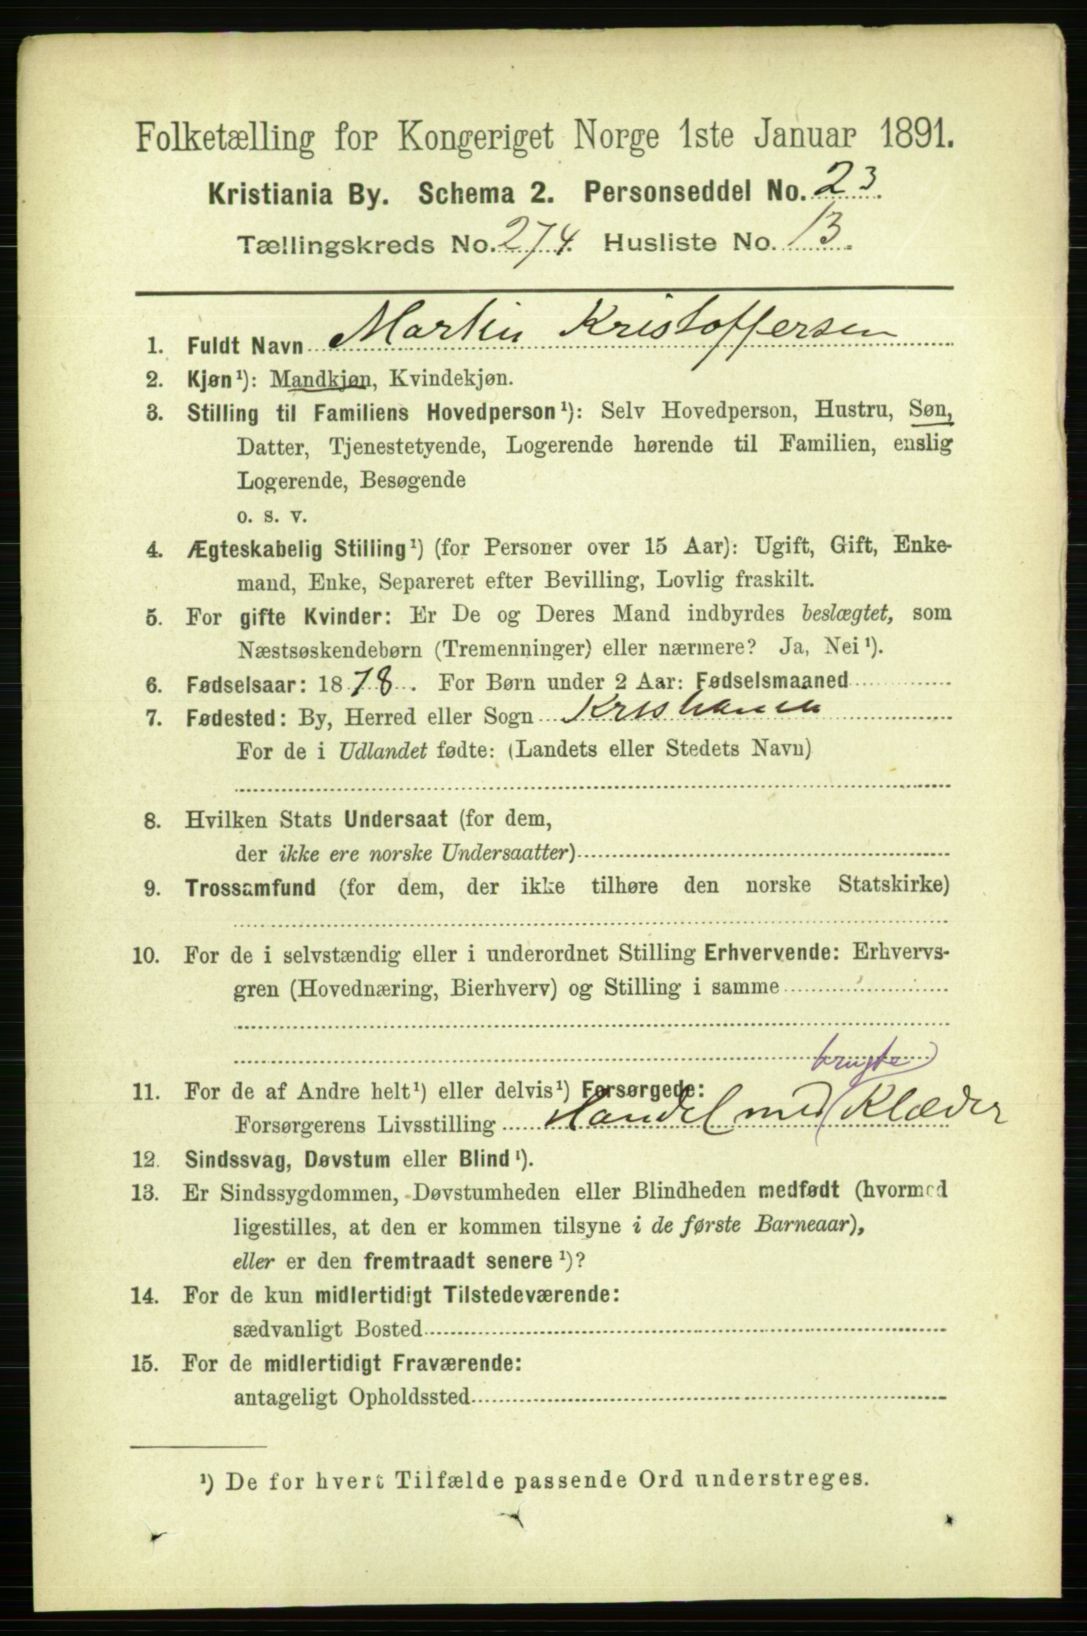 Folketælling for Kongeriget Norge 1ste Januar 1891.
Kristiania By. Schema 2. Personseddel No. 23.
Tællingskreds No. 274. Husliste No. 13.
1. Fuldt Navn Martin Kristoffersen
2. Kjøn¹): Mandkjøn, Kvindekjøn.
3. Stilling til Familiens Hovedperson¹): Selv Hovedperson, Hustru, Søn,
Datter, Tjenestetyende, Logerende hørende til Familien, enslig
Logerende, Besøgende
o. s. v.
4. Ægteskabelig Stilling¹) (for Personer over 15 Aar): Ugift, Gift, Enke-
mand, Enke, Separeret efter Bevilling, Lovlig fraskilt.
5. For gifte Kvinder: Er De og Deres Mand indbyrdes beslægtet, som
Næstsøskendebørn (Tremenninger) eller nærmere? Ja, Nei¹).
6. Fødselsaar: 1878. For Børn under 2 Aar: Fødselsmaaned
7. Fødested: By, Herred eller Sogn Kristiania
For de i Udlandet fødte: (Landets eller Stedets Navn)
8. Hvilken Stats Undersaat (for dem,
der ikke ere norske Undersaatter)
9. Trossamfund (for dem, der ikke tilhøre den norske Statskirke)
10. For de i selvstændig eller i underordnet Stilling Erhvervende: Erhvervs-
gren (Hovednæring, Bierhverv) og Stilling i samme
brugte
11. For de af Andre helt¹) eller delvis¹) Forsørgede:
Forsørgerens Livsstilling Handel med Klæder
12. Sindssvag, Døvstum eller Blind¹).
13. Er Sindssygdommen, Døvstumheden eller Blindheden medfødt (hvormed
ligestilles, at den er kommen tilsyne i de første Barneaar),
eller er den fremtraadt senere¹)?
14. For de kun midlertidigt Tilstedeværende:
sædvanligt Bosted
15. For de midlertidigt Fraværende:
antageligt Opholdssted
¹) De for hvert Tilfælde passende Ord understreges.